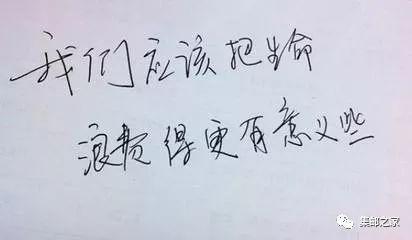 我们应该把生命
浪费得更有意义些
集邮之家